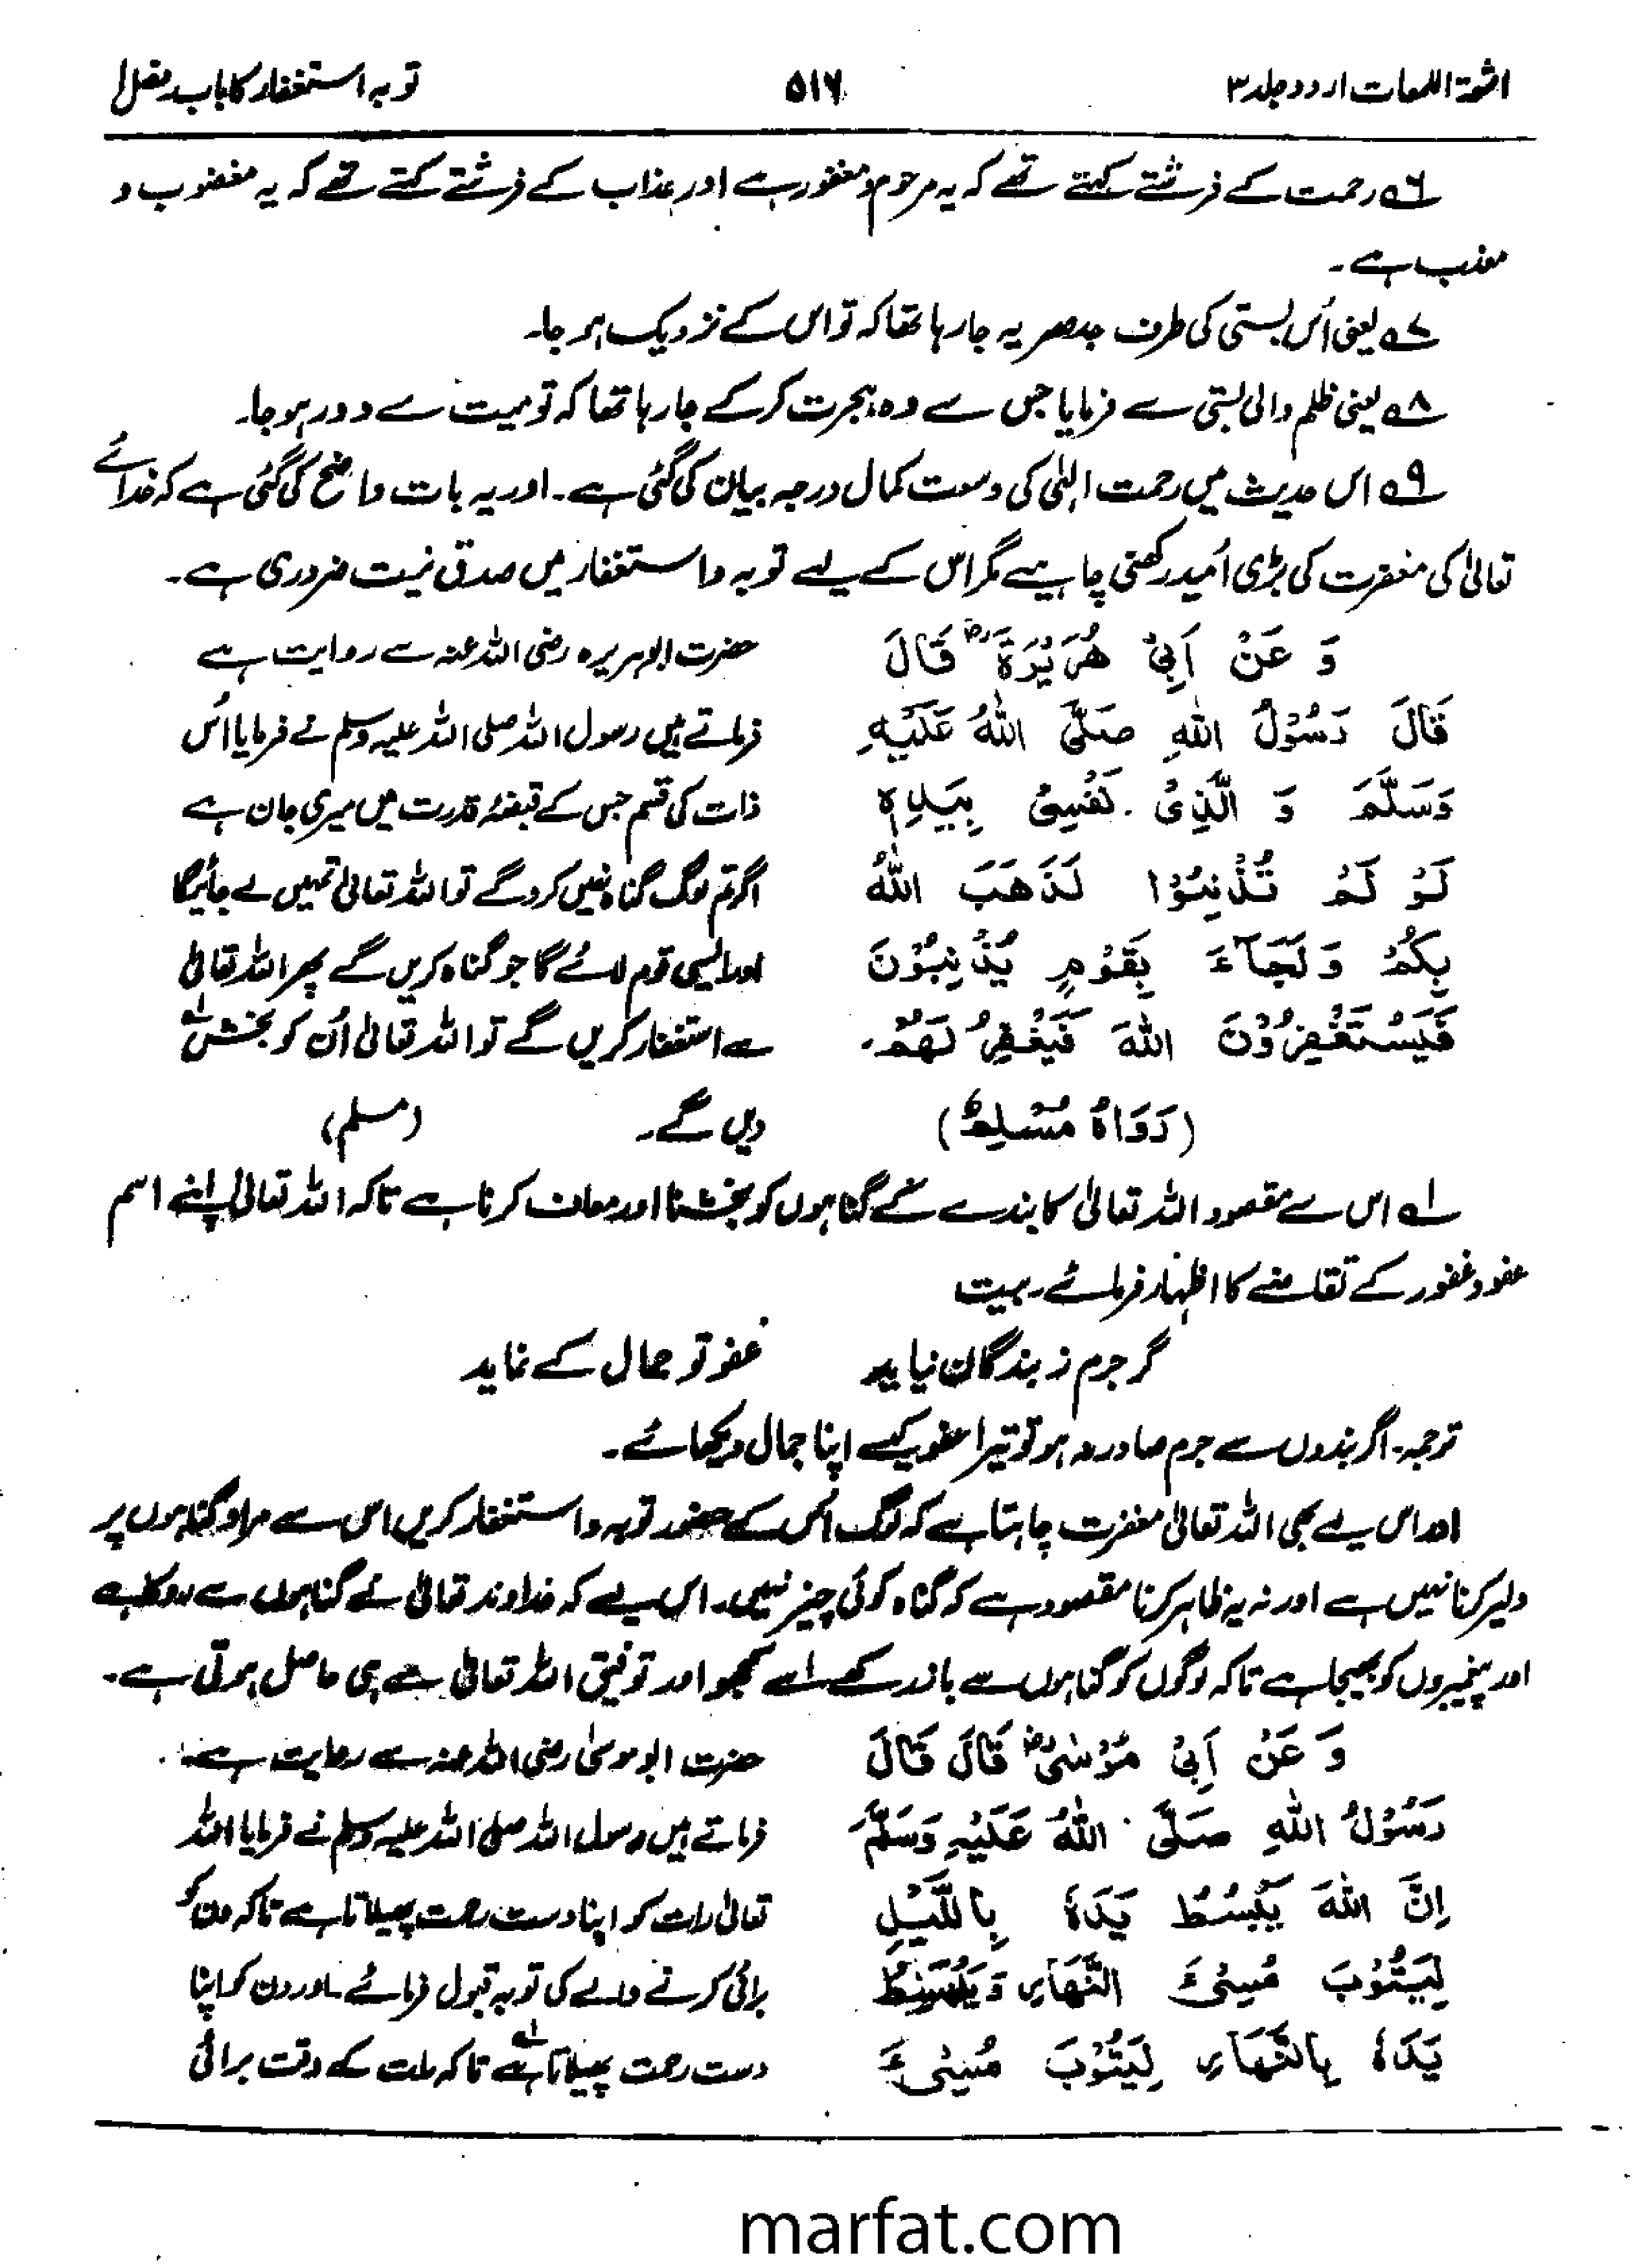 اشعۃ اللمعات اردو جلد ۳
۵۱۶
توبہ استغفار کا باب، فصل ا
۶؎ رحمت کے فرشتے کہتے تھے کہ یہ مرحوم و مغفور ہے اور عذاب کے فرشتے کہتے تھے کہ یہ مغضوب و
معذب ہے۔
۷؎ یعنی اُس بستی کی طرف جدھر یہ جا رہا تھا کہ تو اس کے نزدیک ہو جا۔
۸؎ یعنی ظلم والی بستی سے فرمایا جس سے وہ ہجرت کر کے جا رہا تھا کہ تو میت سے دور ہو جا۔
۹؎ اس حدیث میں رحمت الٰہی کی وسعت کمال درجہ بیان کی گئی ہے۔ اور یہ بات واضح کی گئی ہے کہ خدائے
تعالیٰ کی مغفرت کی بڑی اُمید رکھنی چاہیے مگر اس کے لیے توبہ و استغفار میں صدق نیت ضروری ہے۔
وَ عَنْ اَبِيْ هُرَيْرَةَ رض قَالَ
قَالَ رَسُوْلُ اللهِ صَلَّى اللهُ عَلَيْهِ
وَسَلَّمَ وَ الَّذِىْ نَفْسِىْ بِيَدِهٖ
لَوْ لَمْ تُذْنِبُوْا لَذَهَبَ اللهُ
بِكُمْ وَ لَجَآءَ بِقَوْمٍ يُّذْنِبُوْنَ
فَيَسْتَغْفِرُوْنَ اللهَ فَيَغْفِرُ لَهُمْ۔
(رَوَاهُ مُسْلِمٌ)
حضرت ابوہریرہ رضی اللہ عنہ سے روایت ہے
فرماتے ہیں رسول اللہ صلی اللہ علیہ وسلم نے فرمایا اُس
ذات کی قسم جس کے قبضۂ قدرت میں میری جان ہے
اگر تم لوگ گناہ نہیں کرو گے تو اللہ تعالیٰ تمہیں لے جائیگا
اور ایسی قوم لائے گا جو گناہ کریں گے پھر اللہ تعالیٰ
سے استغفار کریں گے تو اللہ تعالیٰ اُن کو بخش ا؎
دیں گے۔ (مسلم)
ا؎ اس سے مقصود اللہ تعالیٰ کا بندے کے گناہوں کو بخشنا اور معاف کرنا ہے تاکہ اللہ تعالیٰ اپنے اسم
عفو و غفور کے تقاضے کا اظہار فرمائے۔ بیت
گر جرم ز بندگان نیاید عفو تو جمال کے نماید
ترجمہ۔ اگر بندوں سے جرم صادر نہ ہو تو تیرا عفو کیسے اپنا جمال دیکھائے۔
اور اس لیے بھی اللہ تعالیٰ مغفرت چاہتا ہے کہ لوگ اس کے حضور توبہ و استغفار کریں اس سے مراد گناہوں پر
دلیر کرنا نہیں ہے اور نہ یہ ظاہر کرنا مقصود ہے کہ گناہ کوئی چیز نہیں۔ اس لیے کہ خداوند تعالیٰ نے گناہوں سے روکا ہے
اور پیغمبروں کو بھیجا ہے تاکہ لوگوں کو گناہوں سے باز رکھے اسے سمجھو اور توفیق اللہ تعالیٰ سے ہی حاصل ہوتی ہے۔
وَ عَنْ اَبِيْ مُوْسٰى رض قَالَ قَالَ
رَسُوْلُ اللهِ صَلَّى اللهُ عَلَيْهِ وَسَلَّمَ
اِنَّ اللهَ يَبْسُطُ يَدَهٗ بِاللَّيْلِ
لِيَتُوْبَ مُسِيْءُ النَّهَارِ وَيَبْسُطُ
يَدَهٗ بِالنَّهَارِ لِيَتُوْبَ مُسِيْءُ
حضرت ابو موسیٰ رضی اللہ عنہ سے روایت ہے۔
فرماتے ہیں رسول اللہ صلی اللہ علیہ وسلم نے فرمایا اللہ
تعالیٰ رات کو اپنا دست رحمت پھیلاتا ہے تاکہ دن کو
برائی کرنے والے کی توبہ قبول فرمائے۔ اور دن کو اپنا
دست رحمت پھیلاتا ہے ا؎ تاکہ رات کے وقت برائی
marfat.com